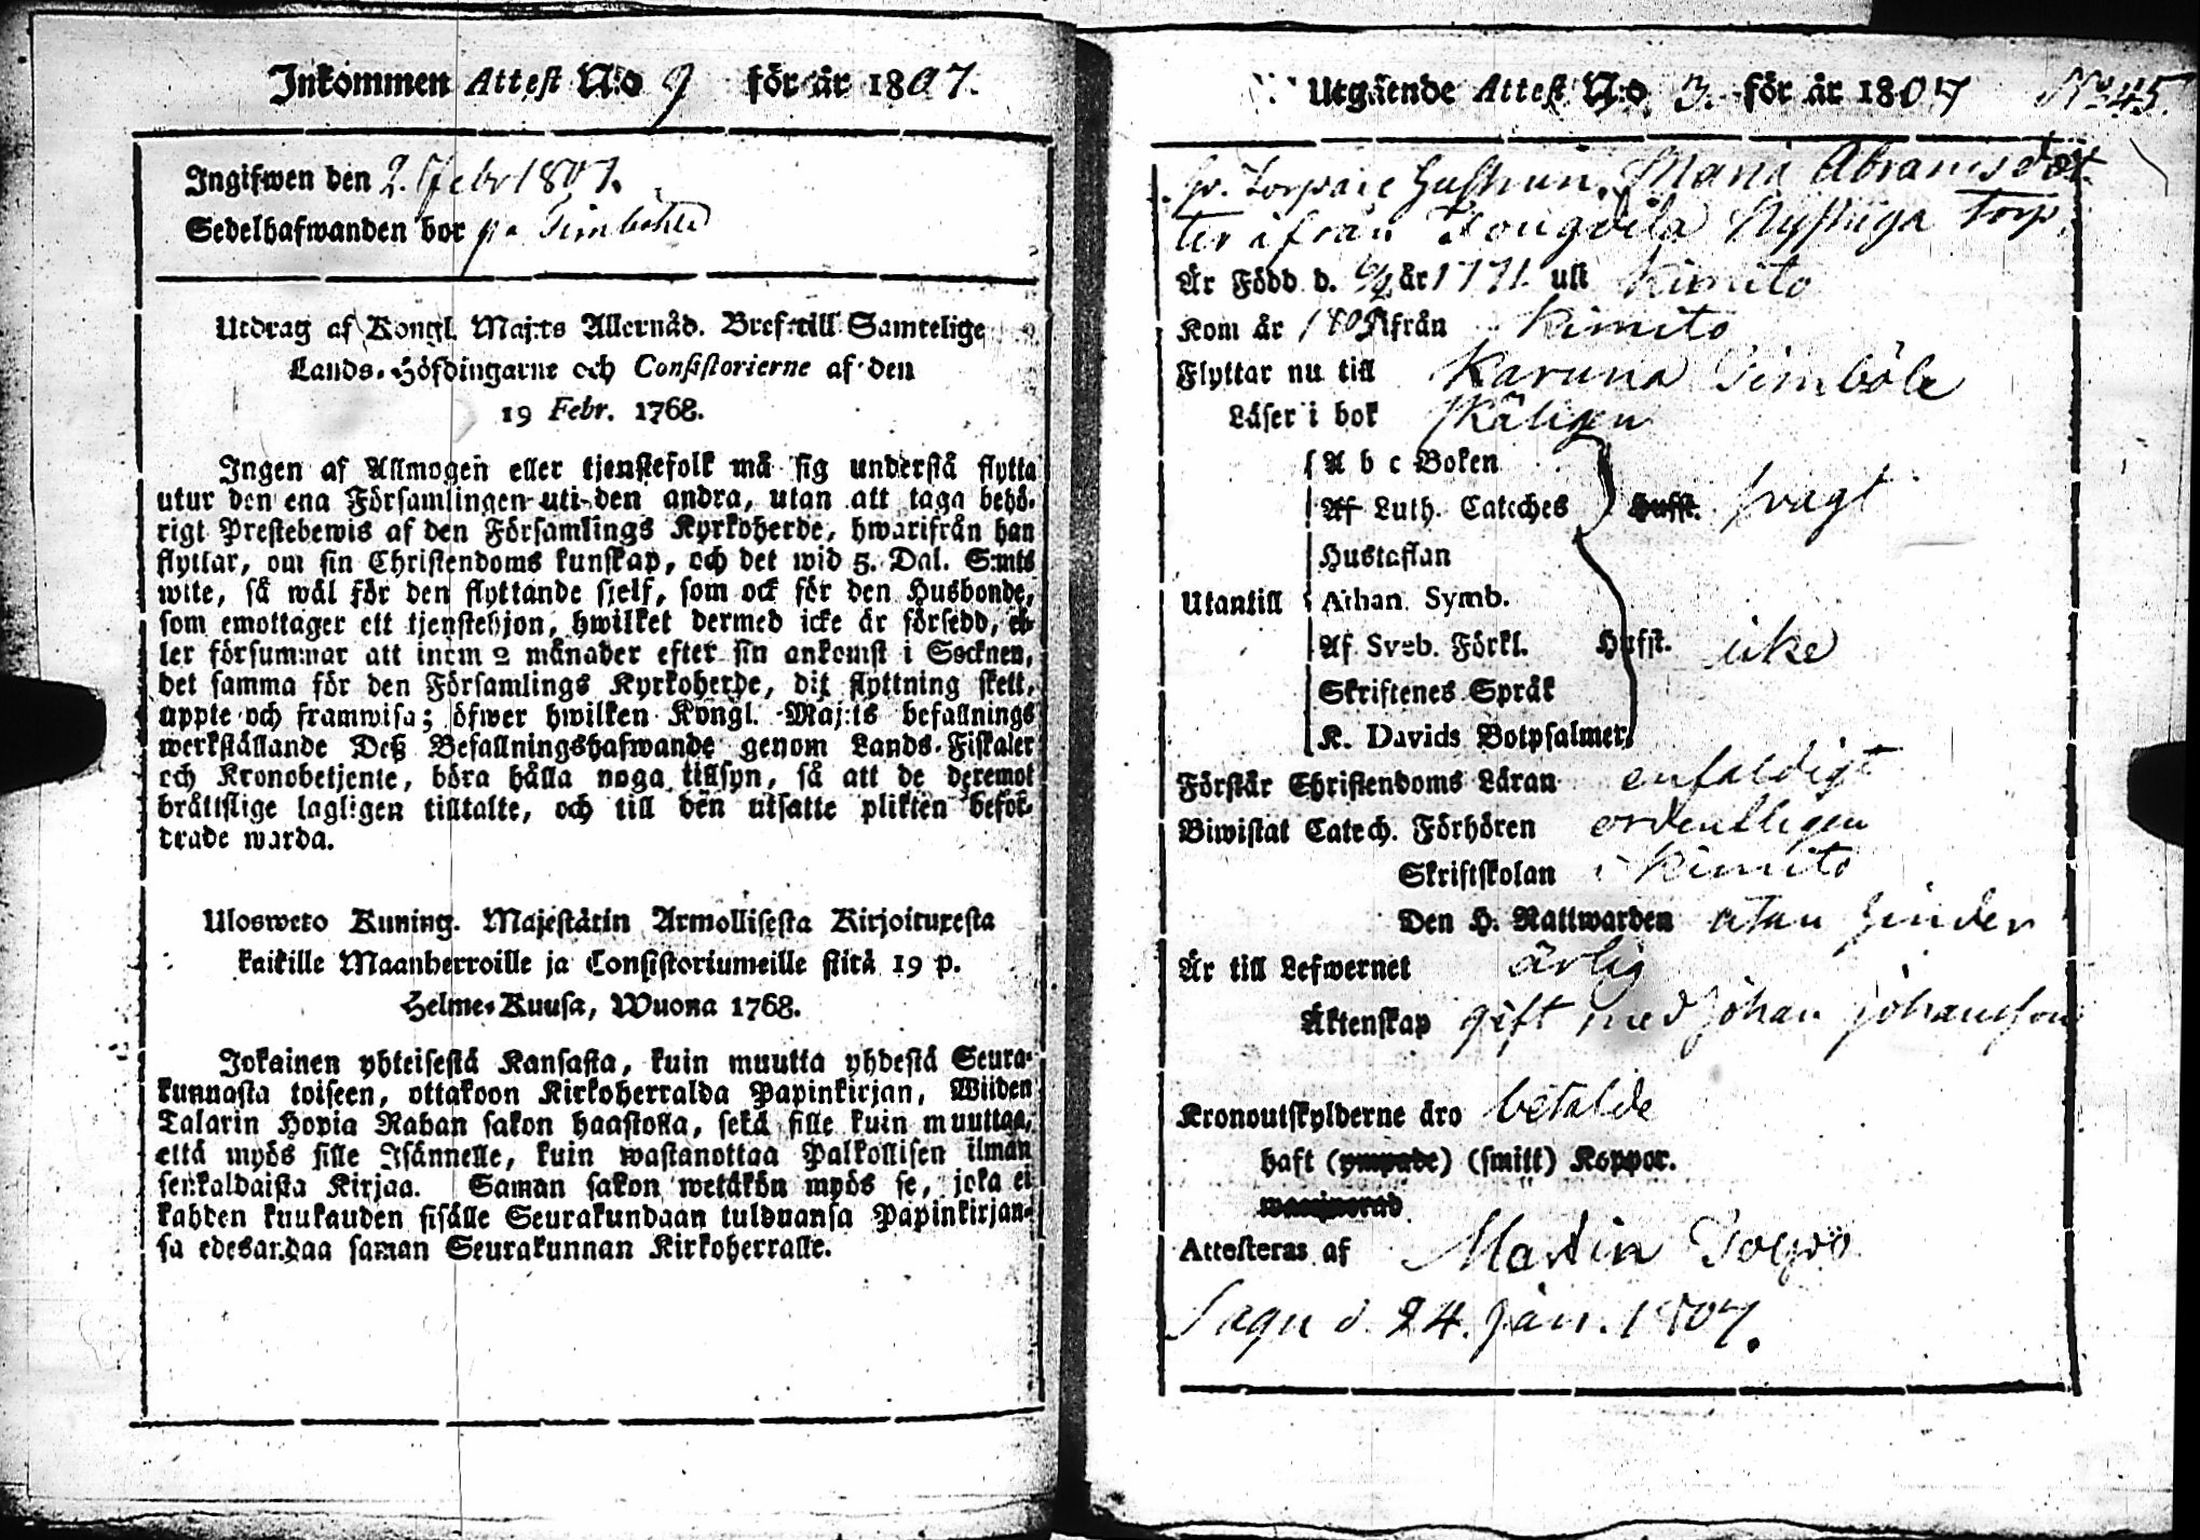 Inkommen Attest N:o 9 för år 1807.
Ingifwen den 2. Febr 1807.
Sedelhafwanden bor på Gimböhle
Utdrag af Kongl. Maj:ts Allernåd. Bref till Samtelige
Lands-Höfdingarne och Consistorierne af den
19 Febr. 1768.
Ingen af Allmogen eller tjenstefolk må sig understå flytta
utur den ena Församlingen uti den andra, utan att taga behö-
rigt Prestebewis af den Församlings Kyrkoherde, hwarifrån han
flyttar, om sin Christendoms kunskap, och det wid 5. Dal. S:mts
wite, så wäl för den flyttande sjelf, som ock för den Husbonde,
som emottager ett tjenstehjon, hwilket dermed icke är försedd, el-
ler försummar att inom 2 månader efter sin ankomst i Socknen,
det samma för den Församlings Kyrkoherde, dit flyttning skett,
uppte och framwisa; öfwer hwilken Kongl. Maj:ts befallnings
werkställande Deß Befallningshafwande genom Lands-Fiskaler
och Kronobetjente, böra hålla noga tillsyn, så att de deremot
bråttslige lagligen tilltalte, och till den utsatte plikten befor-
drade warda.
Ulosweto Kuning. Majestätin Armollisesta Kirjoituxesta
kaikille Maanherroille ja Consistoriumeille siitä 19 p.
Helme-Kuusa, Wuona 1768.
Jokainen yhteisestä Kansasta, kuin muutta yhdestä Seura-
kunnasta toiseen, ottakoon Kirkoherralda Papinkirjan, Wiiden
Talarin Hopia Rahan sakon haastolla, sekä sille kuin muuttaa,
että myös sille Isännelle, kuin wastanottaa Palkollisen ilman
senkaldaista Kirjaa. Saman sakon wetäkön myös se, joka ei
kahden kuukauden sisälle Seurakundaan tulduansa Papinkirjan-
sa edesandaa saman Seurakunnan Kirkoherralle.
Utgående Attest N:o 3. för år 1807 No 45.
Torpare Hustrun Maria Abramsdot
ter ifrån Nystuga Torp.
År Född d. år 1771. uti Kimito
Kom år ifrån Kimito
Flyttar nu till Karuna Gimböle
Läser i bok
A b c Boken
Af Luth. Cateches Hufst. svagt
Hustaflan
Utantill Athan. Symb.
Af Sveb. Förkl. Hufst. icke
Skriftenes Språk
K. Davids Botpsalmer
Förstår Christendoms Läran enfaldigt
Biwistat Catech. Förhören ordentligen
Skriftskolan i Kimito
Den H. Nattwarden utan hinder
Är till Lefwernet ärlig
Äktenskap gift med Johan Johansson
Kronoutskylderne äro betalde
haft (ympade) (smitt) Koppor.
waccinerad
Attesteras af Martin
Sagu d. 24. Jan. 1807.